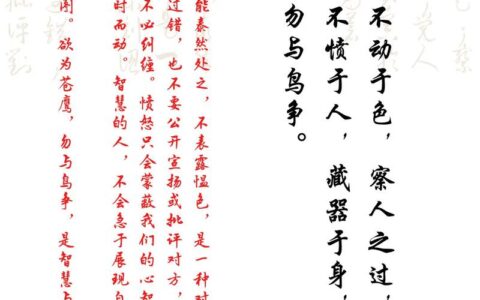 不动于色，察人之过，
不愤于人，藏器于身，
勿与鸟争。
能泰然处之，不表露愠色，是一种对
过错，也不要公开宣扬或批评对方，
不必纠缠。愤怒只会蒙蔽我们的心智
时而动。智慧的人，不会急于展现自
图。欲为苍鹰，勿与鸟争，是智慧与